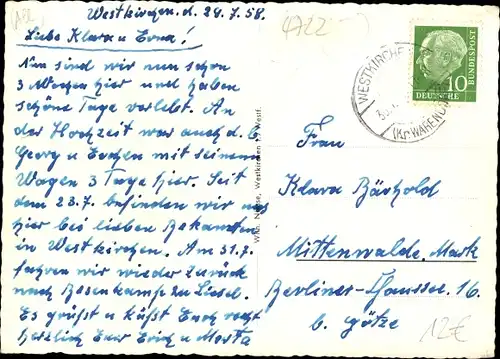 Westkirchen, d. 29.7.58.
Liebe Klara u Erna!
Nun sind wir nun schon
3 Wochen hier und haben
schöne Tage verlebt. An
der Hochzeit war auch d. b.
Georg u Evchen mit seinem
Wagen 3 Tage hier. Seit
dem 23.7. befinden wir uns
hier bei lieben Bekannten
in Westkirchen. Am 31.7.
fahren wir wieder zurück
nach Bosenkamp zu Liesel.
Es grüßt u küßt Euch recht
herzlich Euer Erich u Marta
Westkirchen i. Westf.
4722
WESTKIRCHEN
(Kr. WARENDORF)
10
DEUTSCHE
BUNDESPOST
Frau
Klara Bärhold
Mittenwalde. Mark
Berliner-Chaussee. 16.
b. Götze
12€